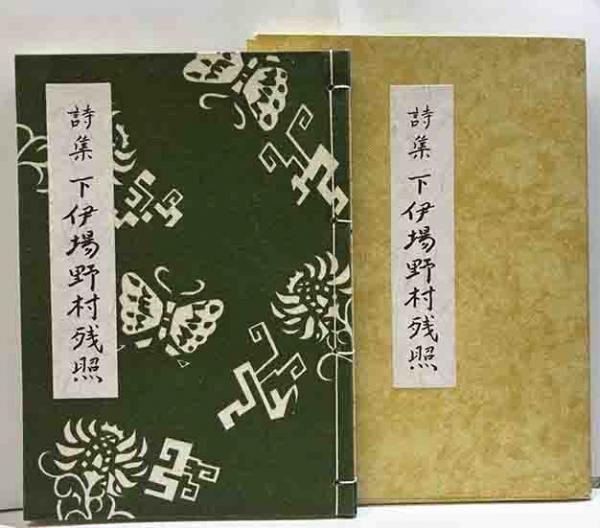 詩集 下伊場野村残照
詩集 下伊場野村残照